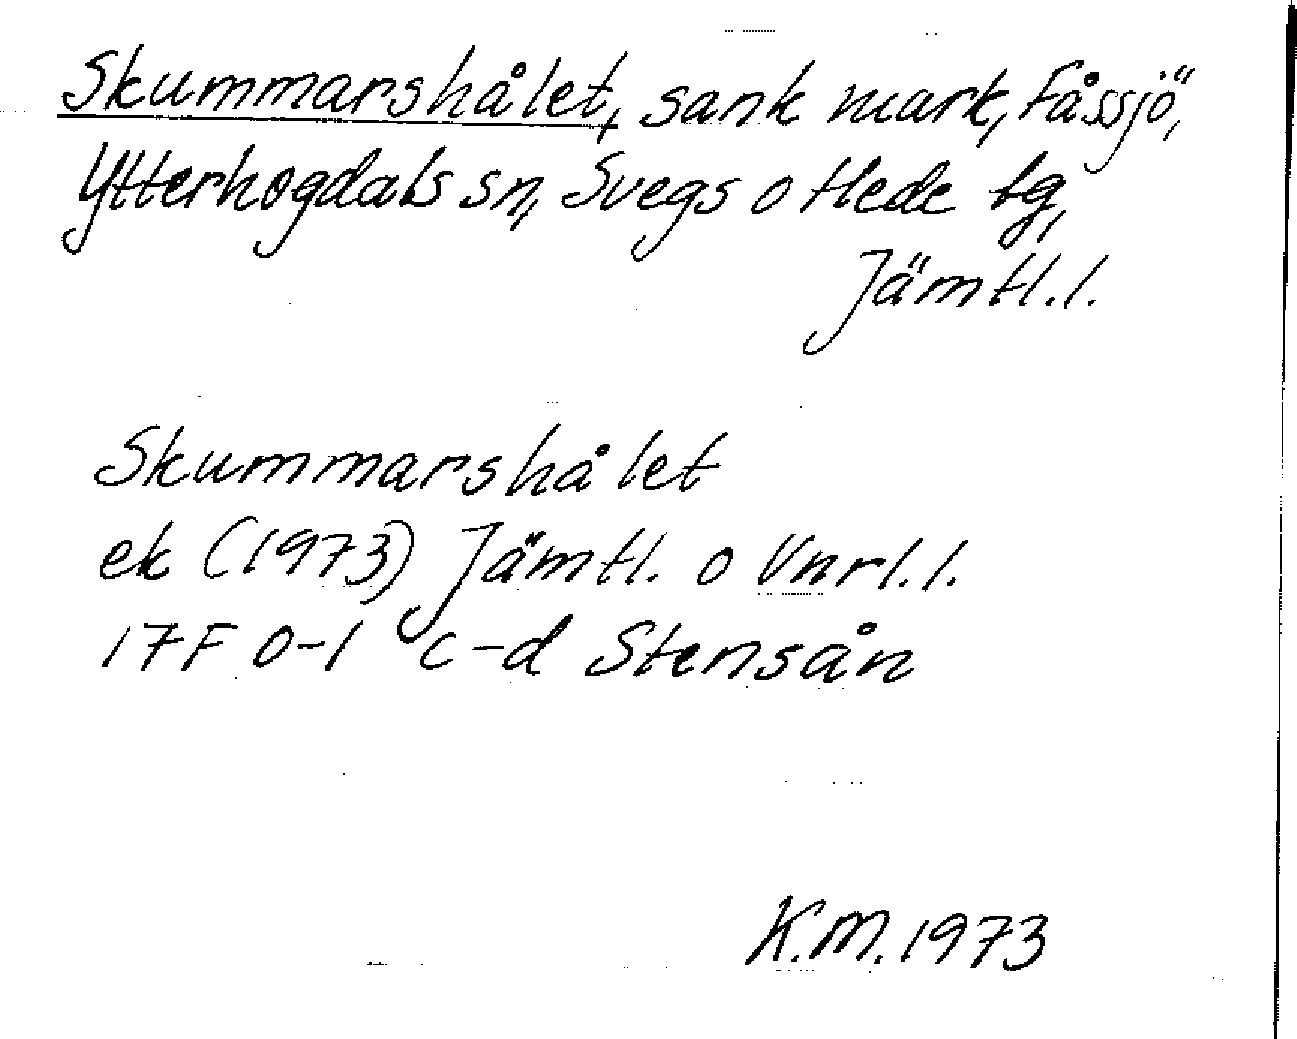 Skummarshålet, sank mark, Fåssjö,
Ytterhogdals sn, Svegs o Hede tg,
Jämtl. l.
Skummarshålet
ek (1973) Jämtl. o Vnrl. l.
17F 0-1 c-d Stensån
K.M. 1973